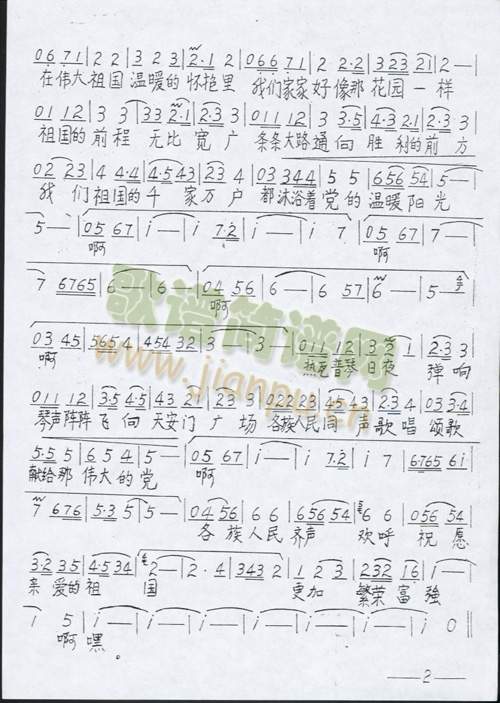 06 71 | 2 2 | 3 2 3 | 2·1 2 | 066 71 | 2 2·2 | 323 21 | 2 — |
在伟大祖国温暖的怀抱里 我们家家好像那花园一样
011 12 | 3 3 | 33 2·1 | 2·3 3 | 011 12 | 3 3·5 | 4·3 2·1 | 2·3 3 |
祖国的前程 无比宽广 条条大路通向胜利的前方
02 23 | 4 4·4 | 4·5 43 | 23 4 | 03 344 | 5 5 | 656 54 | 5 — |
我们祖国的千家万户 都沐浴着党的温暖阳光
5 — | 05 67 | i — | i 7·2 | i — | i 7 | 05 67 | 7 — |
啊 啊
7 6765 | 6 — | 6 — | 04 56 | 6 — | 6 57 | 6 — | 5 — |
啊
歌谱简谱网
www.jianpu.cn
03 45 | 565 4 | 454 32 | 3 — | 3 — | 011 12 | 3 3 | 2·3 3 |
啊 热瓦普琴日夜弹响
011 12 | 3·5 4·5 | 43 21 | 23 3 | 022 23 | 45 43 | 23 4 | 03 3·4 |
琴声阵阵飞向天安门广场 各族人民同声歌唱 颂歌
5·5 5 | 6 5 4 | 5 5 | 05 67 | i — | i — | i 7·2 | i 7 | 6·765 6i |
献给那伟大的党 啊
7 676 | 5·3 5 | 5 — | 04 56 | 6 6 | 656 54 | 6 6 | 056 54 |
各族人民齐声欢呼祝愿
3·2 35 | 4·5 34 | 2 — | 2·4 | 343 2 | 1 2 3 | 232 16 | i — |
亲爱的祖国 更加繁荣富强
i 5 | i — | i — | i — | i — | i — | i — | i 0 ‖
啊嘿。
—2—